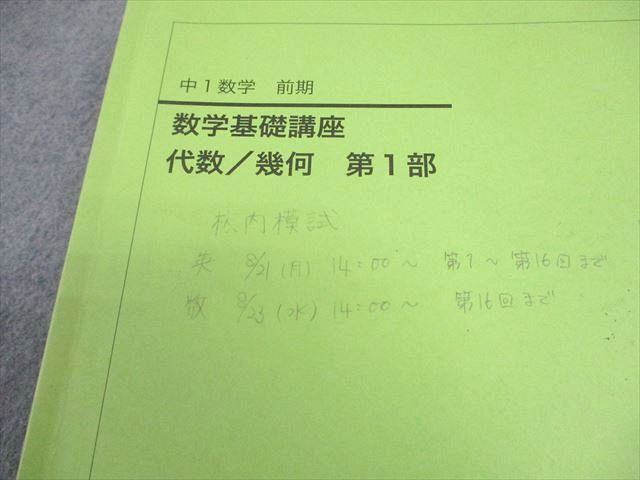 中1数学 前期
数学基礎講座
代数／幾何 第1部
校内模試
英 8/21(月) 14:00～ 第1～第16回まで
数 8/23(水) 14:00～ 第16回まで